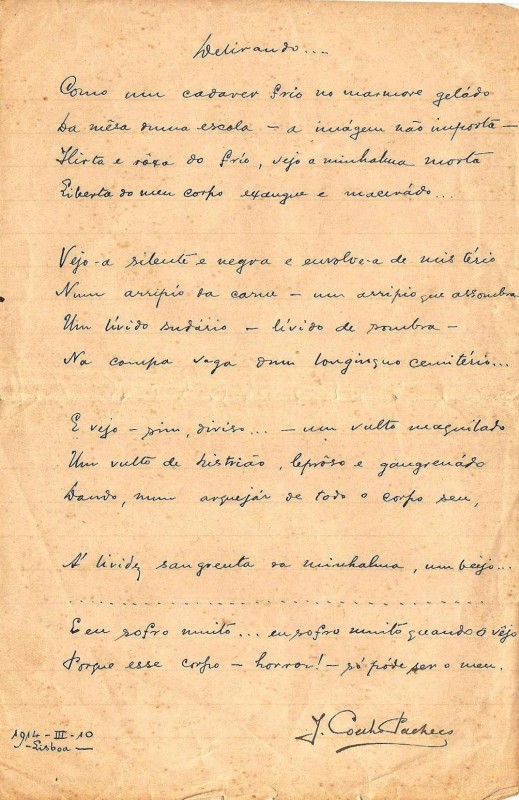 Delirando....
Como um cadaver frio no marmore geládo
Da mêsa duma escola – a imágem não importa –
Hirta e rôxa do frio, vejo a minhalma morta
Liberta do meu corpo exangue e macerádo...
Vejo-a silente e negra e envolve-a de mistério
Num arripio da carne – um arripio que assombra
Um lívido sudário – lívido de sombra –
Na campa vaga dum longinquo cemitério...
E vejo – sim, diviso... – um vulto maquilado
Um vulto de histrião, leprôso e gangrenádo
Dando, num arquejár de todo o corpo seu,
A' lividez sangrenta da minhalma, um beijo...
E eu sofro muito... eu sofro muito quando o vejo
Porque esse corpo – horror! – só póde ser o meu.
J. Coelho Pacheco
1914-III-10
–Lisboa–